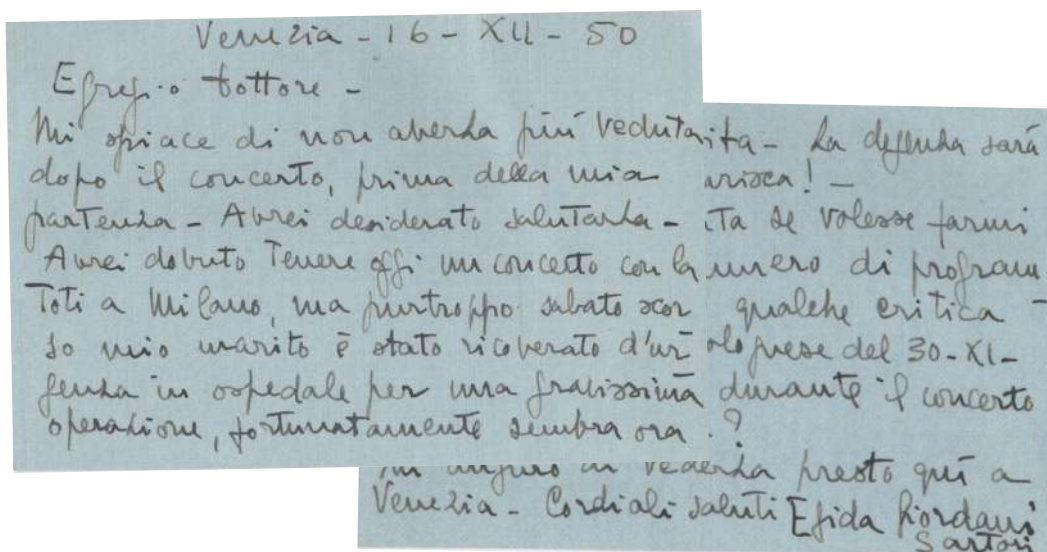 Venezia - 16 - XII - 50
Egregio Dottore -
Mi spiace di non averLa piú veduta
dopo il concerto, prima della mia
partenza - Avrei desiderato salutarLa -
Avrei dovuto tenere oggi un concerto con la
Toti a Milano, ma purtroppo sabato scor
so mio marito è stato ricoverato d'ur
genza in ospedale per una gravissima
operazione, fortunatamente sembra ora
ita - La degenza sará
arisca! -
ta se volesse farmi
umero di program
qualche critica -
olognese del 30-XI-
durante il concerto
?
Mi auguro di vederLa presto quí a
Venezia - Cordiali saluti Egida Giordani
Sartori